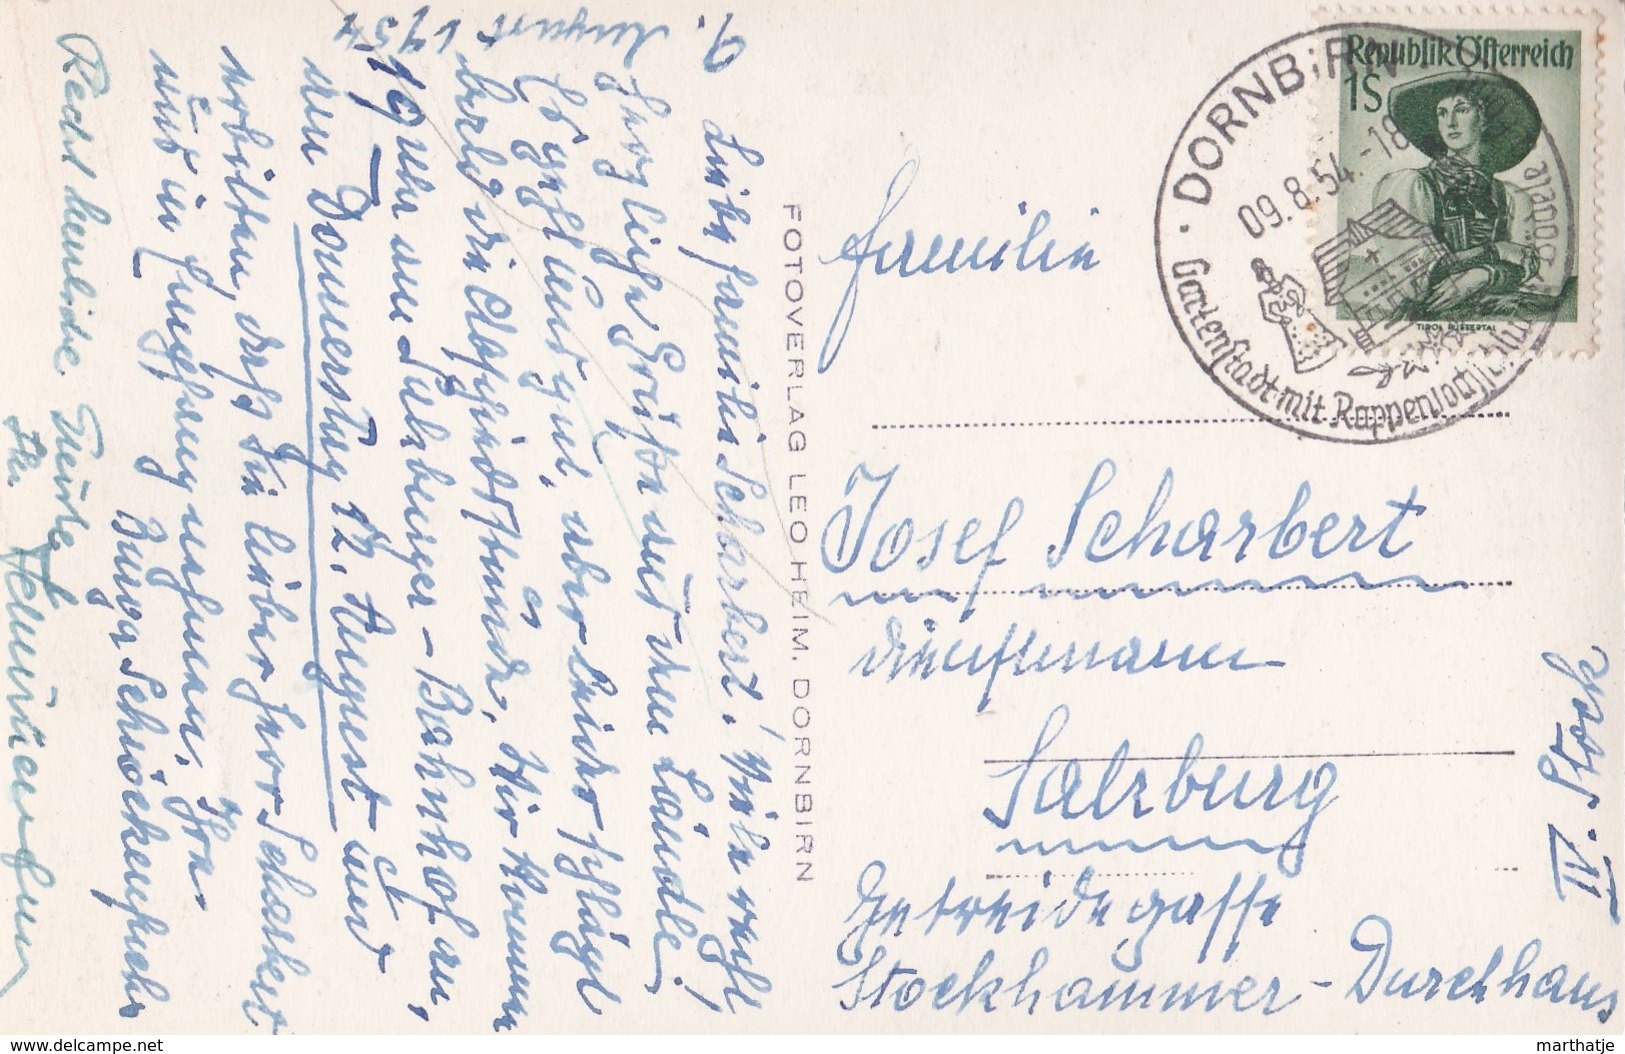 9. August 1954
Liebe Familie Scharbert! Viele recht
herzliche Grüße aus dem Ländle!
Es geht uns gut, aber leider schlägt
bald die Abschiedsstunde. Wir kommen
19 Uhr am Salzburger-Bahnhof an,
am Donnerstag 12. August und
erbitten, daß Sie lieber Herr Scharbert
uns in Empfang nehmen. Ihre
Recht herzliche Grüße
Ihre
FOTOVERLAG LEO HEIM, DORNBIRN
Republik Österreich
1S
TIROL PUSTERTAL
DORNBIRN
09.8.54.-18
Gartenstadt mit Rappenlochschlucht
Familie
Josef Scharbert
Dienstmann
Salzburg
Getreidegasse
Stockhammer-Durchhaus
III
www.delcampe.net
marthatje